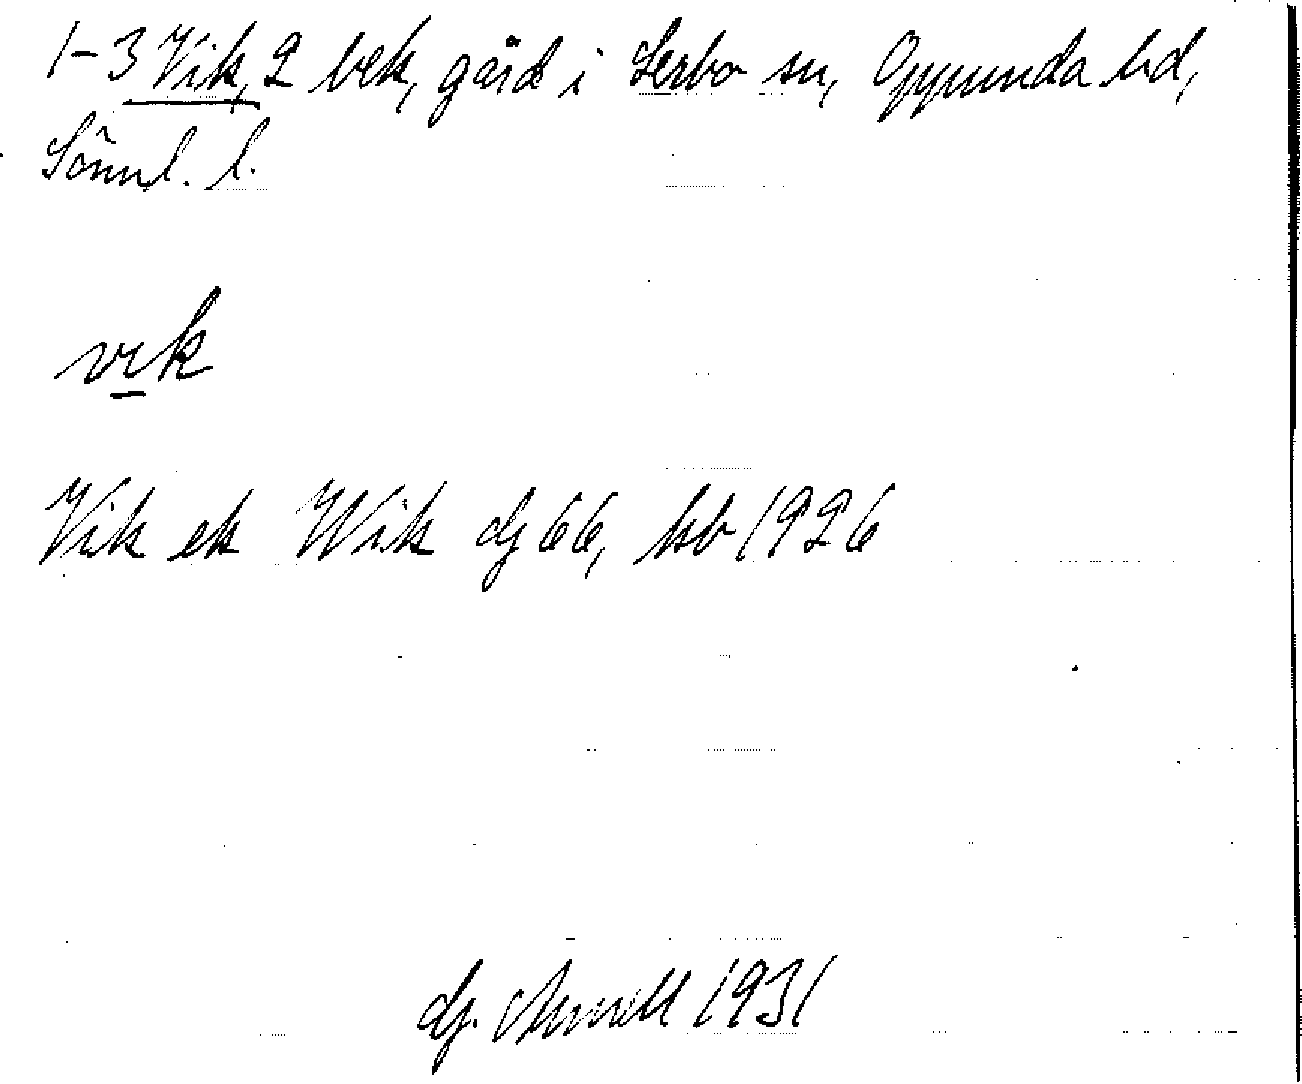 1-3 Vik, 2 bek, gård i Lerbo sn, Oppunda hd,
Söml. l.
vik
Vik ek Wik dj 66, ksb 1926
dj. Arnell 1931